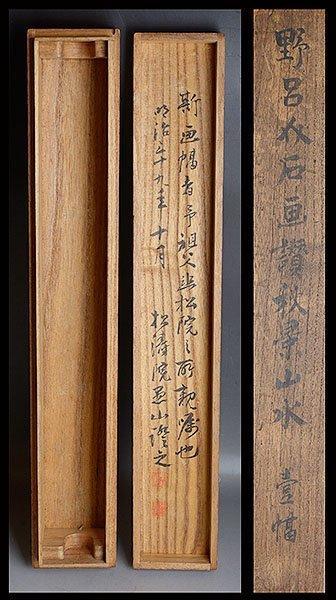 野呂介石画讃秋景山水　壹幅
斯画幅者予祖父坐松院之所親嘱也
明治三十九年十月
松濤院愚山證之